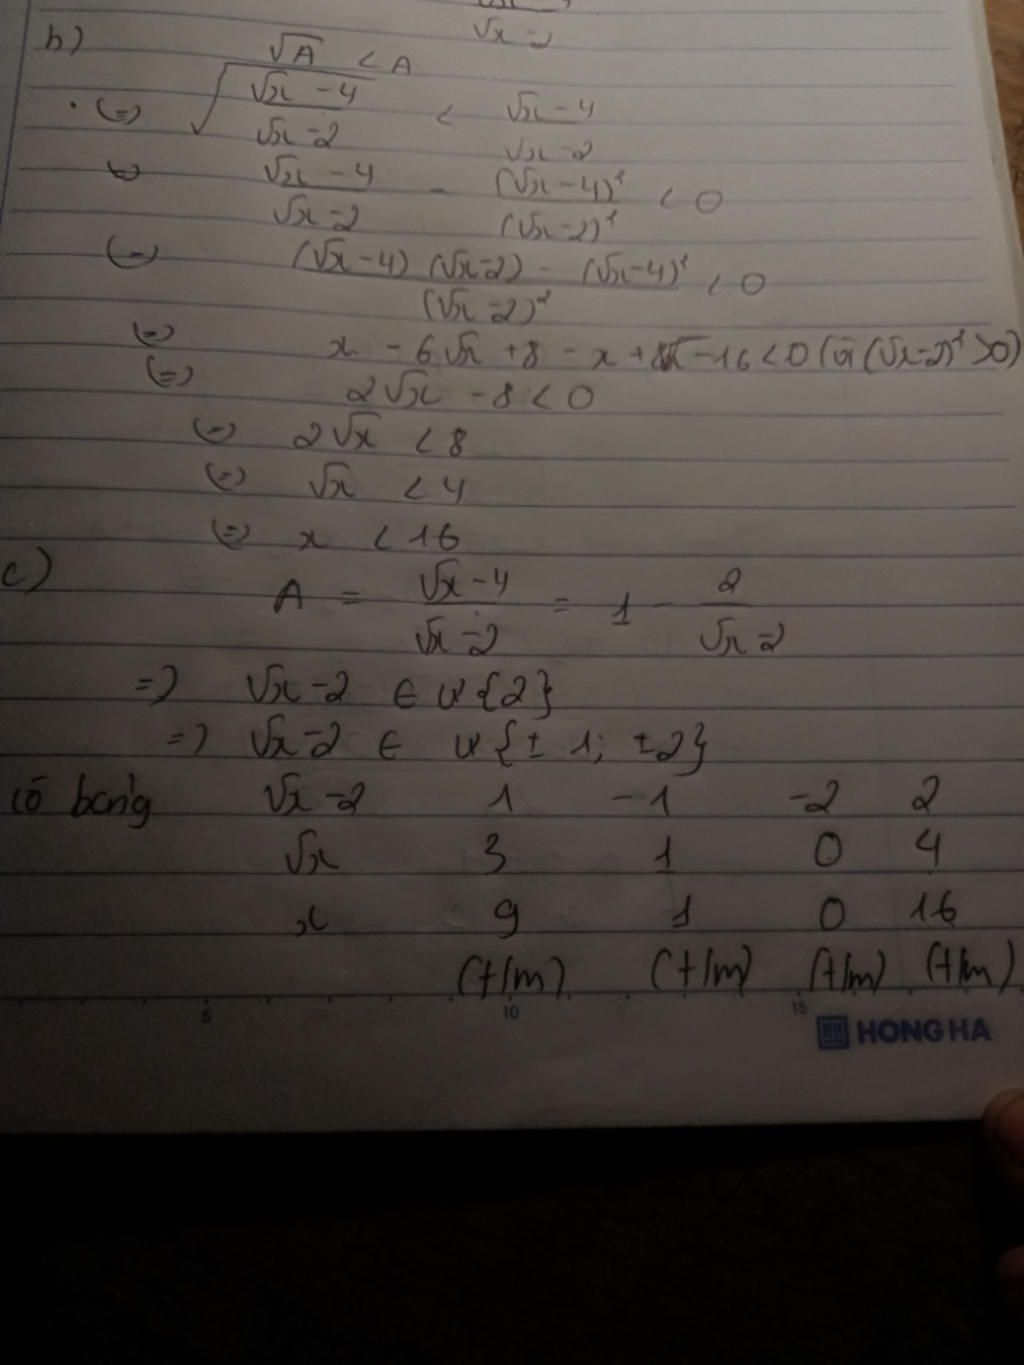 √x - 2
b) √A < A
(=) √((√x - 4)/(√x - 2)) < (√x - 4)/(√x - 2)
(=) (√x - 4)/(√x - 2) - (√x - 4)²/(√x - 2)² < 0
(=) ((√x - 4)(√x - 2) - (√x - 4)²)/(√x - 2)² < 0
(=) x - 6√x + 8 - x + 8√x - 16 < 0 (vì (√x - 2)² > 0)
(=) 2√x - 8 < 0
(=) 2√x < 8
(=) √x < 4
(=) x < 16
c) A = (√x - 4)/(√x - 2) = 1 - 2/(√x - 2)
=) √x - 2 ∈ Ư{2}
=) √x - 2 ∈ Ư{± 1; ±2}
có bảng √x - 2 1 -1 -2 2
√x 3 1 0 4
x 9 1 0 16
(t/m) (t/m) (t/m) (t/m)
5 10 15
HH HONG HA